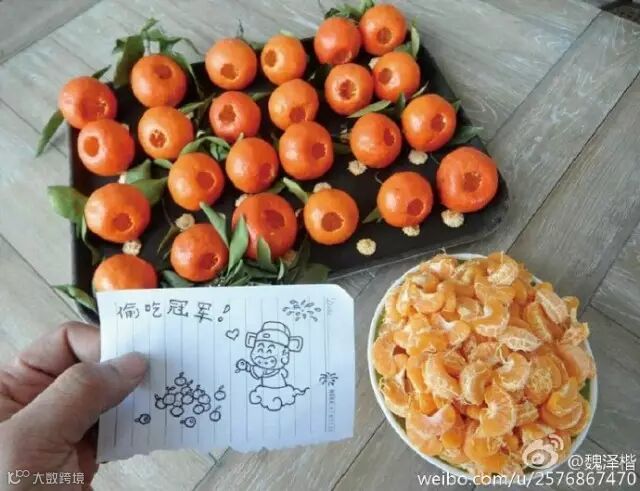 偷吃冠军!
@魏泽楷
weibo.com/u/2576867470
大数跨境